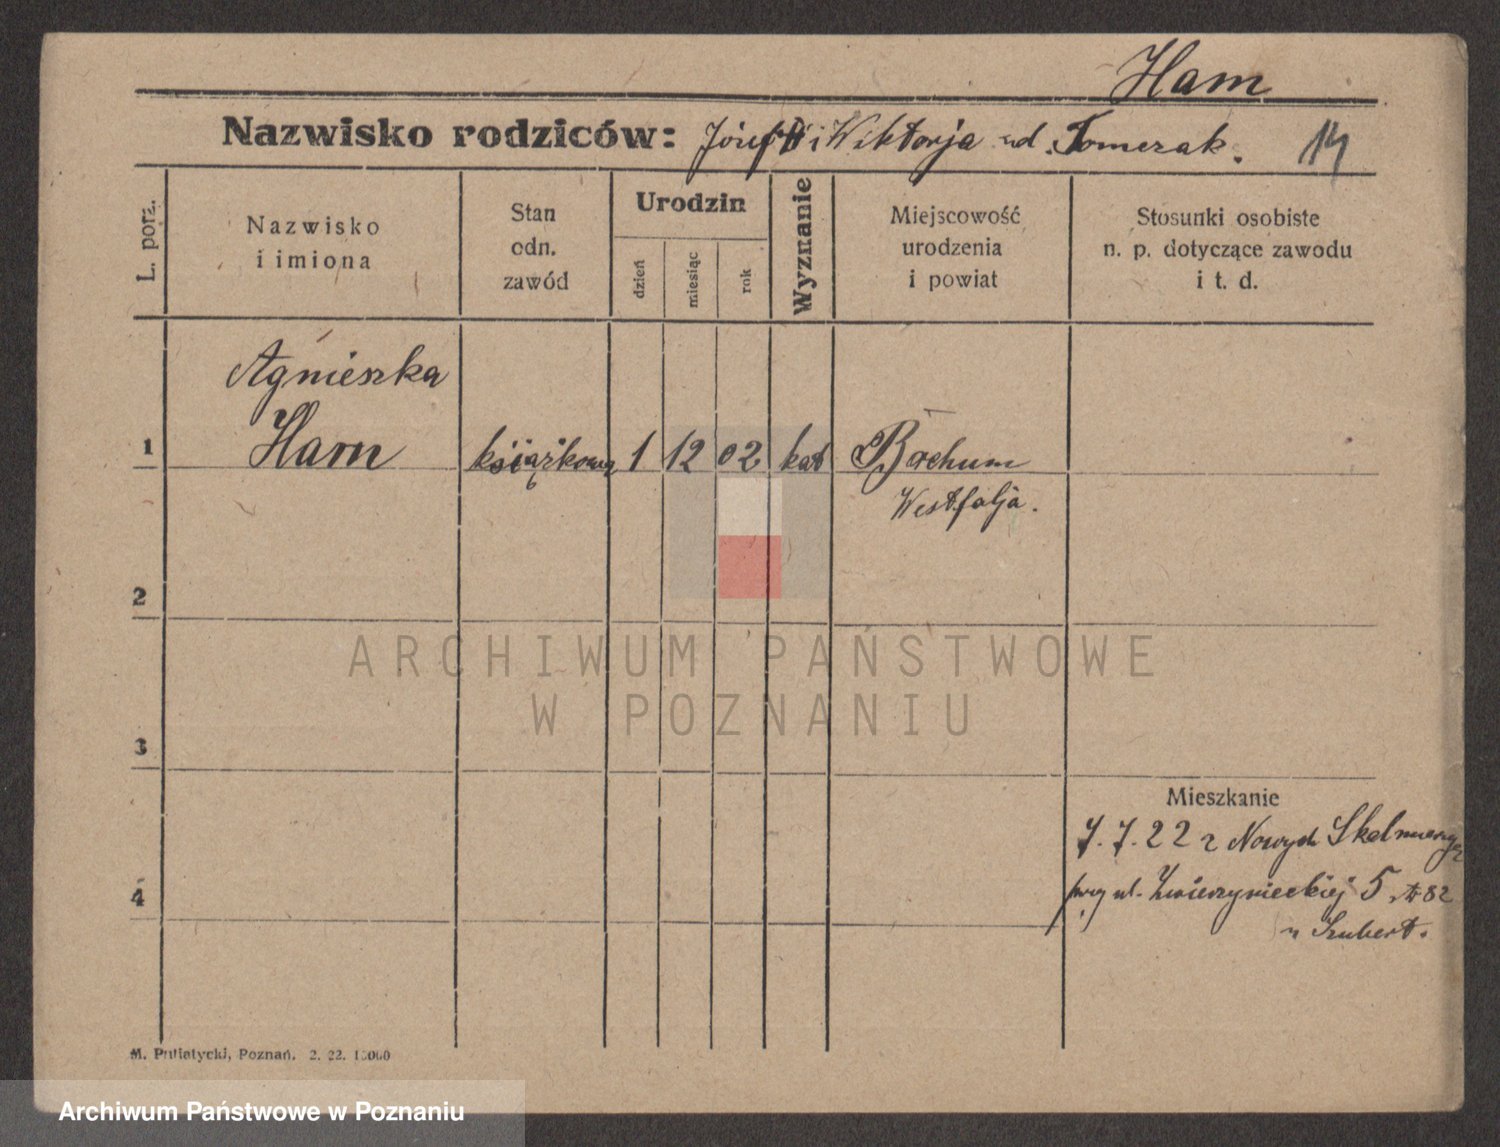 Ham
Nazwisko rodziców: Józef i Wiktorja ud. Tomczak. 14
L. porz.
Nazwisko
i imiona
Stan
odn.
zawód
Urodzin
dzień
miesiąc
rok
Wyznanie
Miejscowość
urodzenia
i powiat
Stosunki osobiste
n. p. dotyczące zawodu
i t. d.
Agnieszka
1 Ham książkowa 1 12 02 kat Bochum
Westfalja.
2
ARCHIWUM PAŃSTWOWE
W POZNANIU
3
Mieszkanie
7. 7. 22 z Nowych Skalmierzyc
4 przy ul. Zwierzynieckiej 5 82
u Szubert.
M. Putiatycki, Poznań. 2. 22. 15000
Archiwum Państwowe w Poznaniu